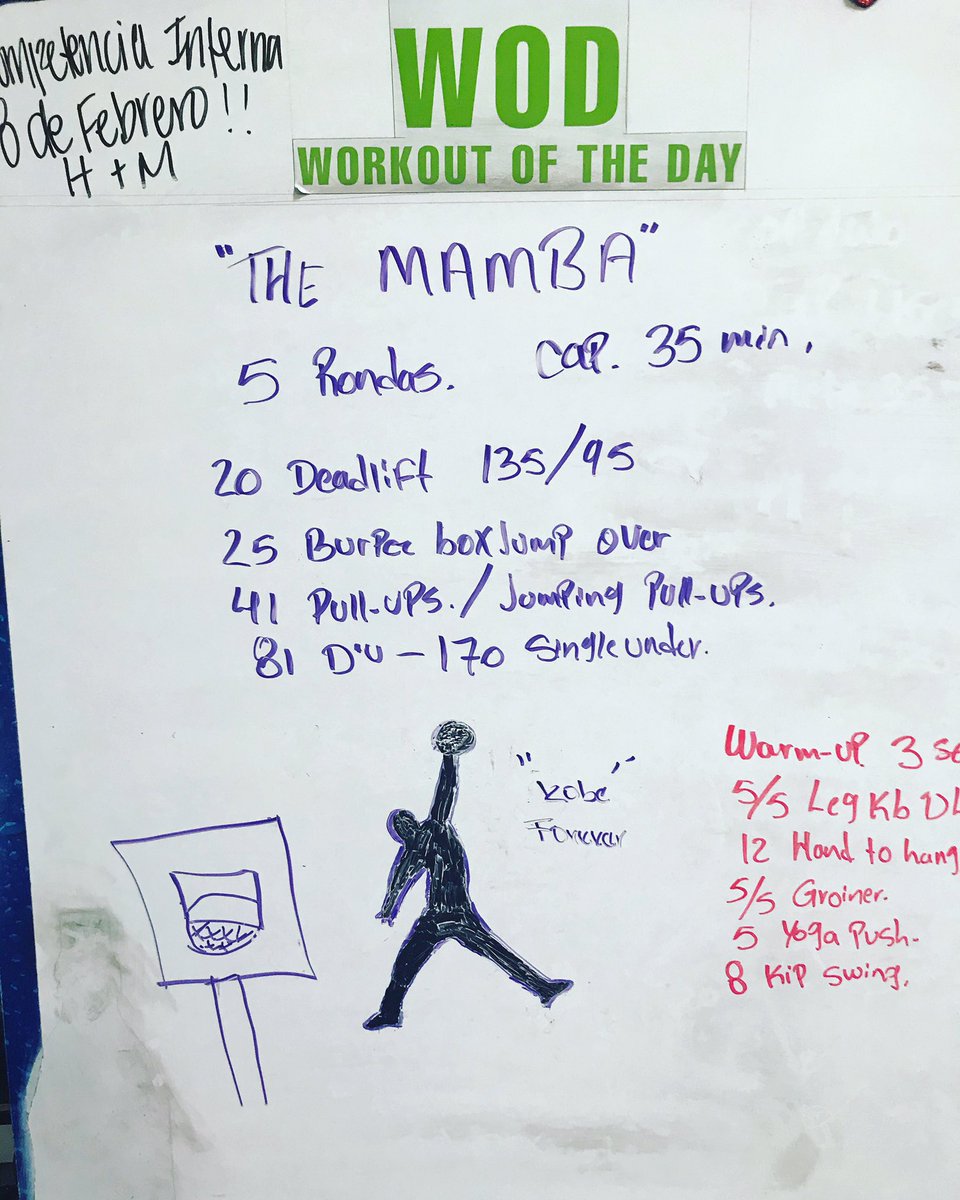 ompetencia Interna
8 de Febrero!!
H + M
WOD
WORKOUT OF THE DAY
"THE MAMBA"
5 Rondas. Cap. 35 min.
20 Deadlift 135/95
25 Burpee box Jump over
41 Pull-ups./Jumping Pull-ups.
81 D'U - 170 Single under.
"Kobe"
Forever
Warm-up 3 Se
5/5 Leg Kb DL
12 Hand to hang
5/5 Groiner.
5 Yoga Push-
8 Kip Swing.